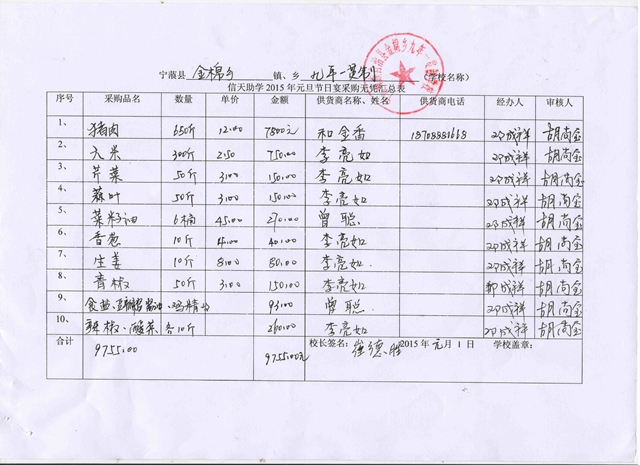 宁蒗县 金棉乡 镇、乡 九年一贯制 (学校名称)
信天助学2015年元旦节日宴采购无凭汇总表
序号 采购品名 数量 单价 金额 供货商名称、姓名 供货商电话 经办人 审核人
1、 猪肉 650斤 12.00 7800元 和金香 成祥 胡尚全
2、 大米 300斤 2.50 750.00 李亮如 成祥 胡尚全
3、 芹菜 50斤 3.00 150.00 李亮如 成祥 胡尚全
4、 50斤 3.00 150.00 李亮如 成祥 胡尚全
5、 菜籽油 6桶 45.00 270.00 曾聪 成祥 胡尚全
6、 香葱 10斤 4.00 40.00 李亮如 成祥 胡尚全
7、 生姜 10斤 8.00 80.00 李亮如 成祥 胡尚全
8、 青椒 50斤 3.00 150.00 李亮如 成祥 胡尚全
9、 食盐、 鸡精 93.00 曾聪 成祥 胡尚全
10、 辣椒、酸菜各10斤 李亮如 成祥 胡尚全
合计 9755.00 9755.00元 校长签名: 德胜 2015年元月1日 学校盖章: